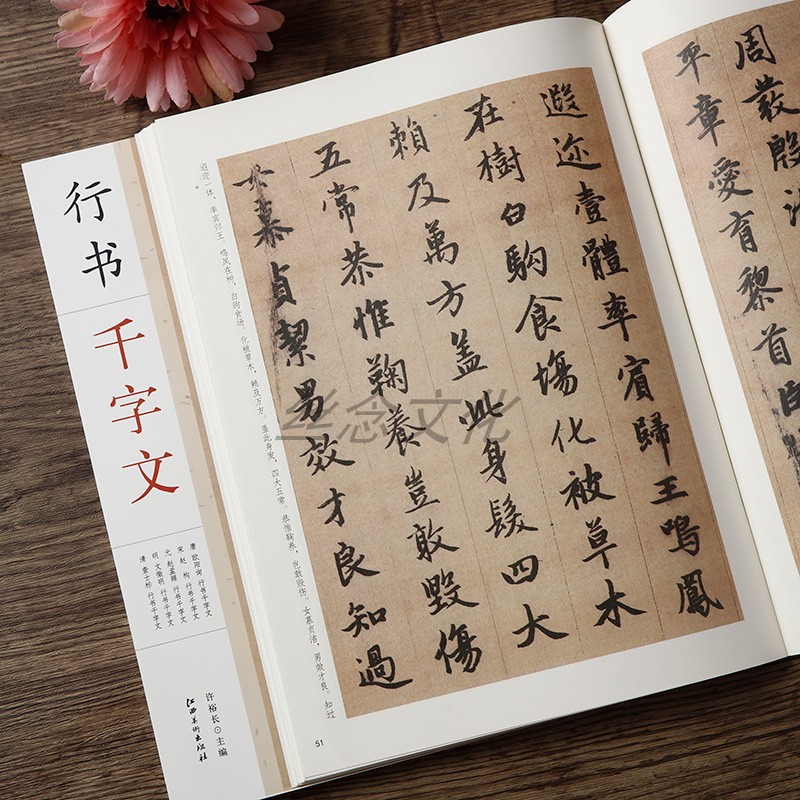 行书
千字文
唐 欧阳询 行书千字文
宋 赵构 行书千字文
元 赵孟頫 行书千字文
明 文徵明 行书千字文
清 查士标 行书千字文
许裕长⊙主编
江西美术出版社
周發殷
平章愛育黎首
遐迩壹體率賓歸王鳴鳳
在樹白駒食場化被草木
賴及萬方蓋此身髮四大
五常恭惟鞠養豈敢毀傷
慕貞絜男效才良知過
遐迩一体，率宾归王。鸣凤在树，白驹食场。化被草木，赖及万方。盖此身发，四大五常。恭惟鞠养，岂敢毁伤。女慕贞洁，男效才良。知过
51
丝念文化